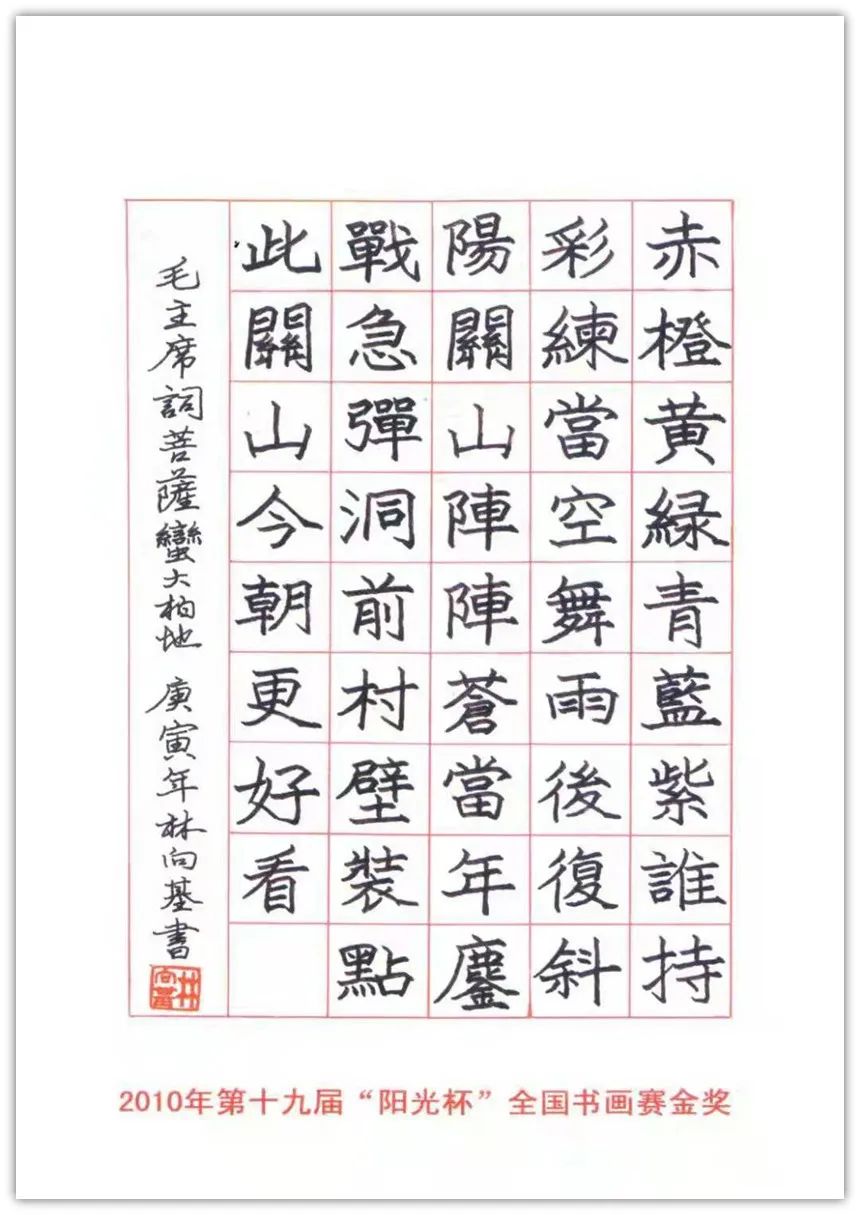 赤橙黄緑青藍紫誰持
彩練當空舞雨後復斜
陽關山陣陣蒼當年鏖
戰急彈洞前村壁裝點
此關山今朝更好看
毛主席詞菩薩蠻大柏地 庚寅年林向基書
2010年第十九届“阳光杯”全国书画赛金奖